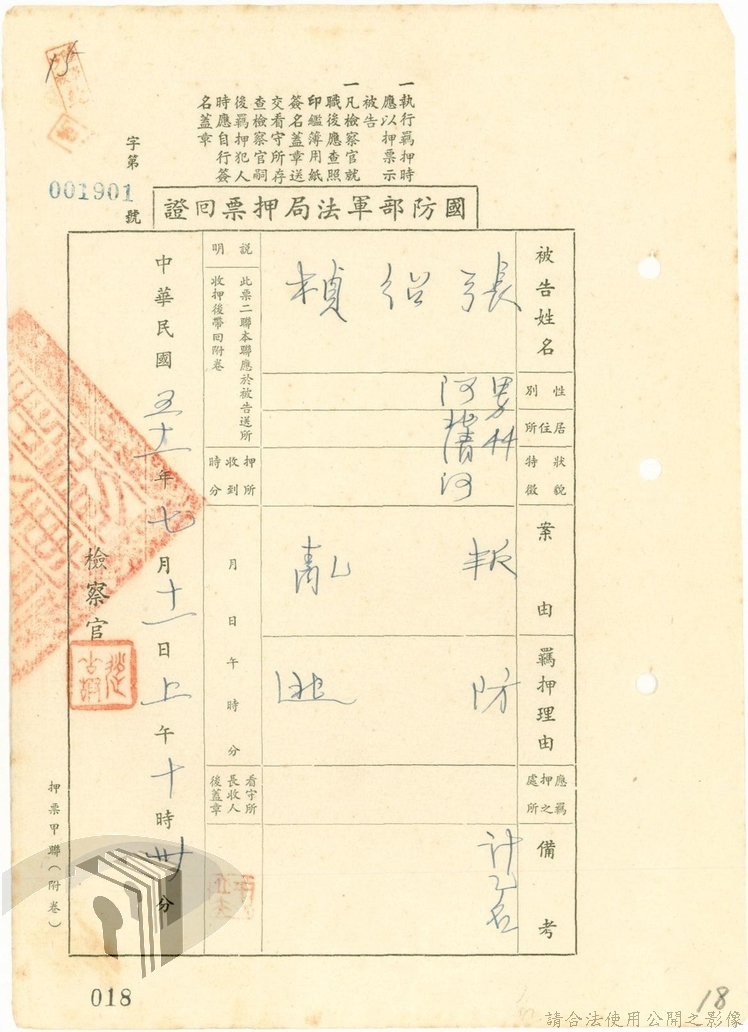 一執行羈押時
應以押票示
被告
一凡檢察官就
職後應查照
印鑑簿用紙
簽名蓋章送
交看守所存
查檢察官嗣
後羈押犯人
時應自行簽
名蓋章
字第
001901
號
國防部軍法局押票回證
被告姓名
張紹楨
性別
男
居住所
狀貌
特徵
案由
叛亂
羈押理由
防逃
應羈
押之
處所
備考
計乙名
說明
此票二聯本聯應於被告送所
收押後帶回附卷
押所
收到
時分
月日午時分
看守所
長收人
後蓋章
中華民國五十一年七月十一日上午十時卅分
檢察官
押票甲聯(附卷)
018
18
請合法使用公開之影像